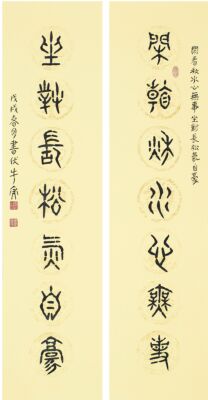 閑看秋水心無事
坐對長松氣自豪
閑看秋水心無事坐對長松氣自豪
戊戌春月書伏牛